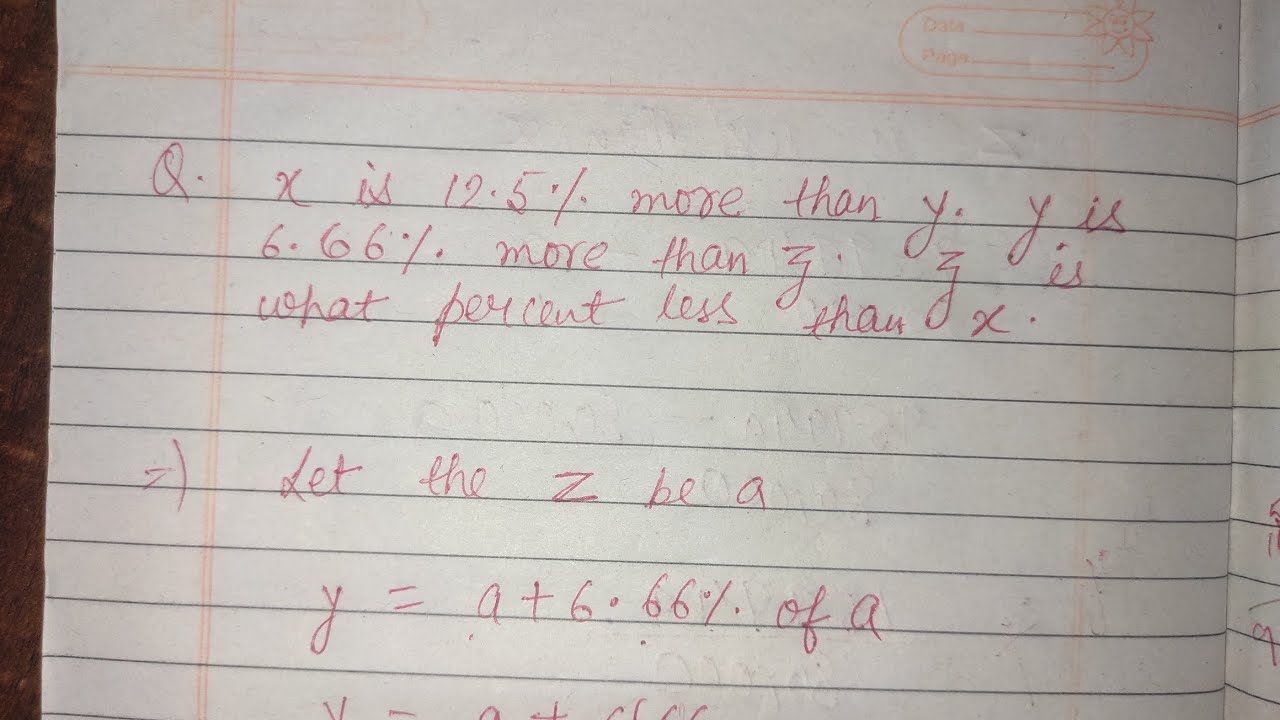 Date
Page
Q. x is 12.5% more than y. y is
6.66% more than z. z is
what percent less than x.
=) Let the z be a
y = a + 6.66% of a
y = a +